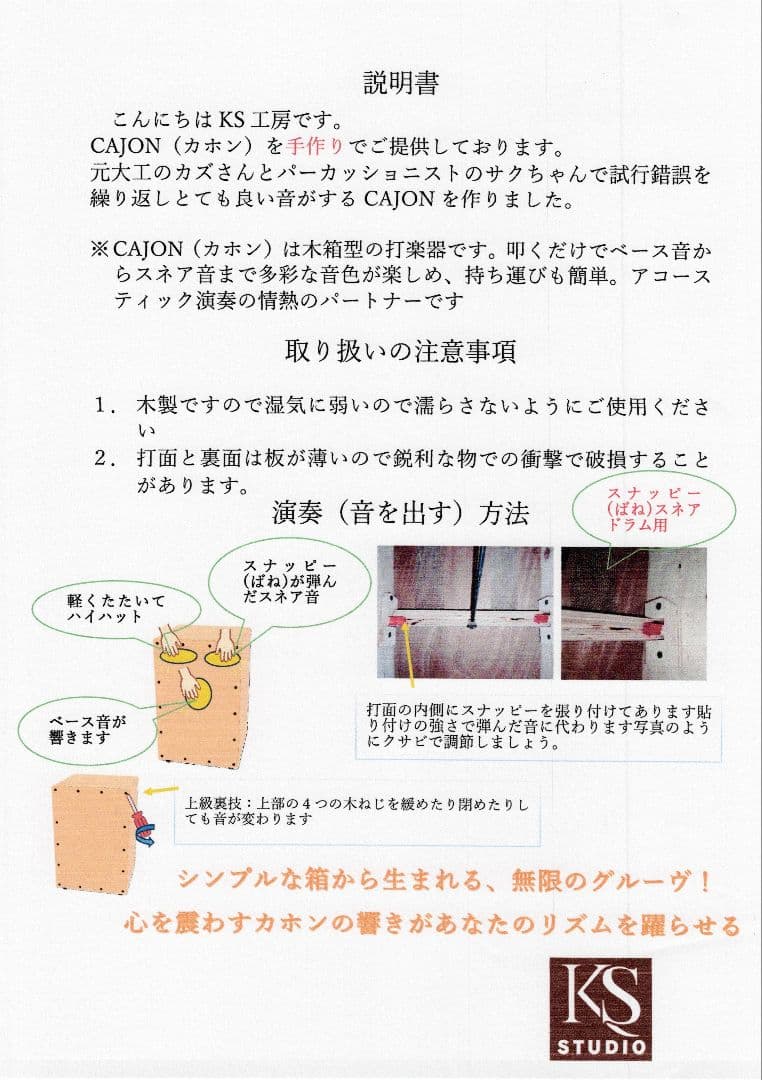 説明書
こんにちは KS 工房です。
CAJON（カホン）を手作りでご提供しております。
元大工のカズさんとパーカッショニストのサクちゃんで試行錯誤を
繰り返しとても良い音がする CAJON を作りました。
※CAJON（カホン）は木箱型の打楽器です。叩くだけでベース音か
らスネア音まで多彩な音色が楽しめ、持ち運びも簡単。アコース
ティック演奏の情熱のパートナーです
取り扱いの注意事項
１． 木製ですので湿気に弱いので濡らさないようにご使用くださ
い
２． 打面と裏面は板が薄いので鋭利な物での衝撃で破損すること
があります。
演奏（音を出す）方法
スナッピー
(ばね)スネア
ドラム用
スナッピー
(ばね)が弾ん
だスネア音
軽くたたいて
ハイハット
ベース音が
響きます
打面の内側にスナッピーを張り付けてあります貼
り付けの強さで弾んだ音に代わります写真のよう
にクサビで調節しましょう。
上級裏技：上部の４つの木ねじを緩めたり閉めたりし
ても音が変わります
シンプルな箱から生まれる、無限のグルーヴ！
心を震わすカホンの響きがあなたのリズムを躍らせる
KS
STUDIO